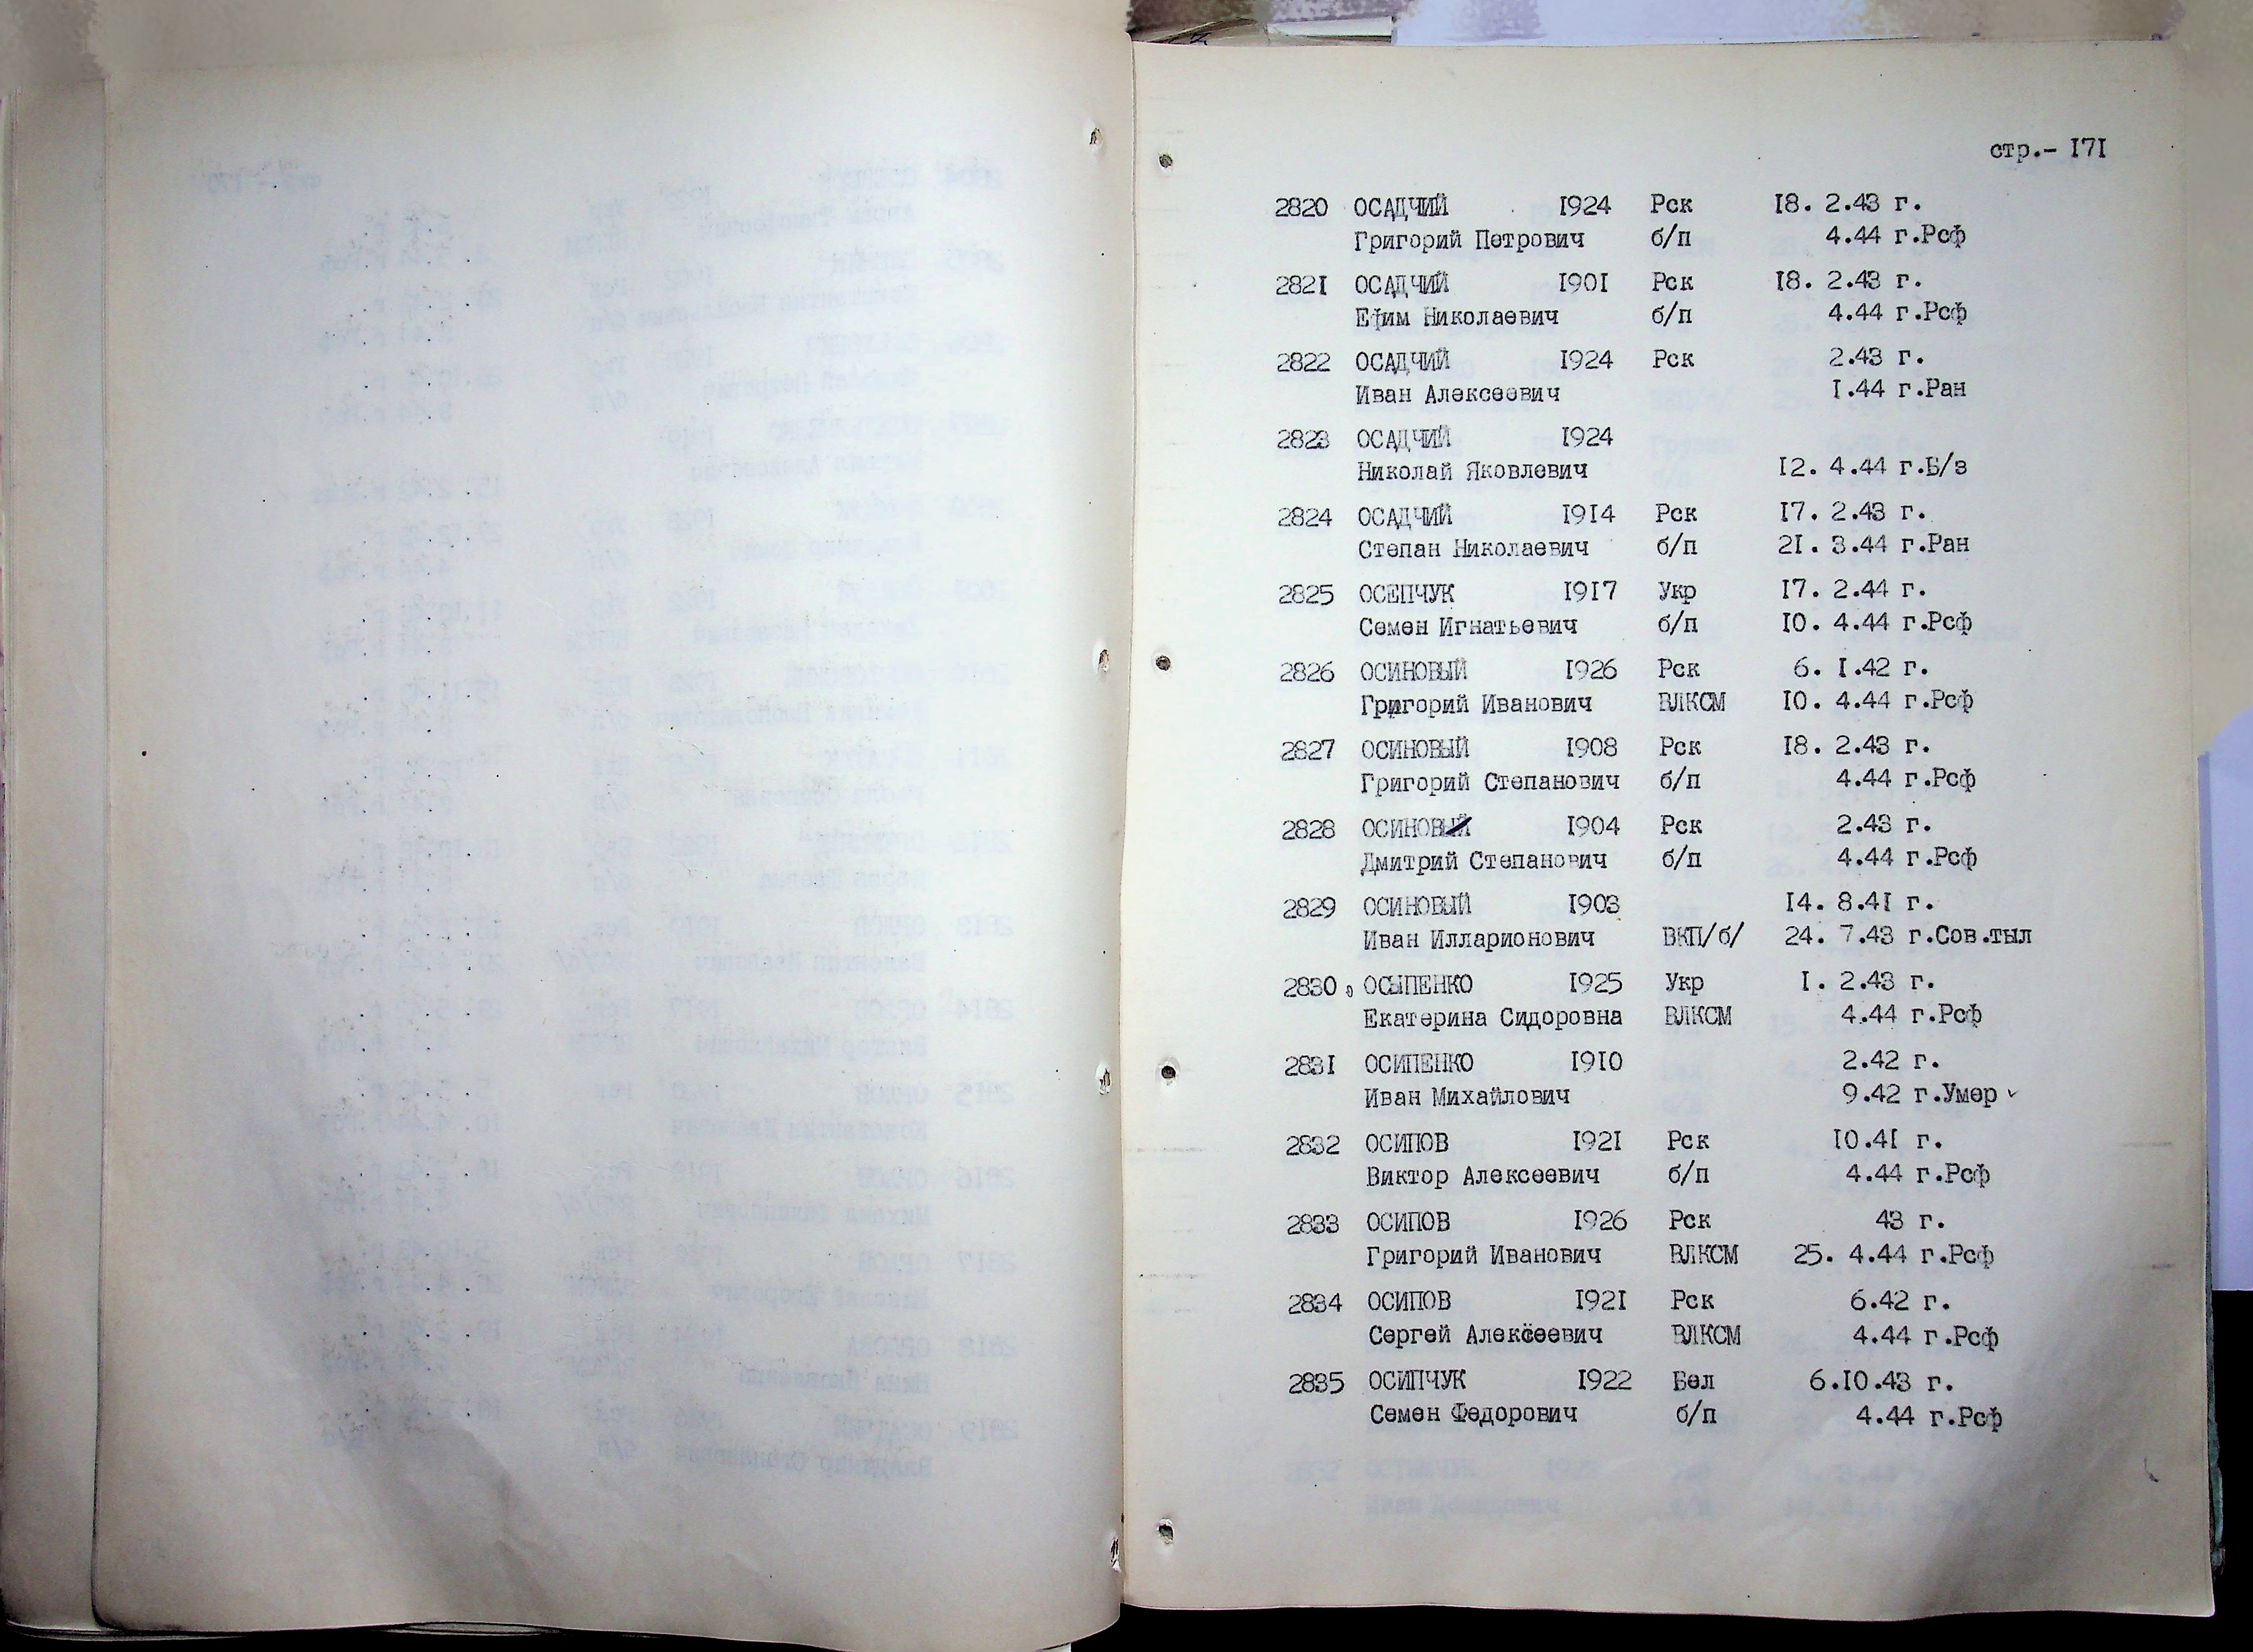 стр.- I7I
2820 ОСАДЧИЙ I924 Рск I8. 2.43 г.
Григорий Петрович б/п 4.44 г.Рсф
282I ОСАДЧИЙ I90I Рск I8. 2.43 г.
Ефим Николаевич б/п 4.44 г.Рсф
2822 ОСАДЧИЙ I924 Рск 2.43 г.
Иван Алексеевич I.44 г.Ран
2823 ОСАДЧИЙ I924
Николай Яковлевич I2. 4.44 г.Б/з
2824 ОСАДЧИЙ I9I4 Рск I7. 2.43 г.
Степан Николаевич б/п 2I. 3.44 г.Ран
2825 ОСЕПЧУК I9I7 Укр I7. 2.44 г.
Семен Игнатьевич б/п I0. 4.44 г.Рсф
2826 ОСИНОВЫЙ I926 Рск 6. I.42 г.
Григорий Иванович ВЛКСМ I0. 4.44 г.Рсф
2827 ОСИНОВЫЙ I908 Рск I8. 2.43 г.
Григорий Степанович б/п 4.44 г.Рсф
2828 ОСИНОВЫЙ I904 Рск 2.43 г.
Дмитрий Степанович б/п 4.44 г.Рсф
2829 ОСИНОВЫЙ I903 I4. 8.4I г.
Иван Илларионович ВКП/б/ 24. 7.43 г.Сов.тыл
2830 ОСЫПЕНКО I925 Укр I. 2.43 г.
Екатерина Сидоровна ВЛКСМ 4.44 г.Рсф
283I ОСИПЕНКО I9I0 2.42 г.
Иван Михайлович 9.42 г.Умер ✓
2832 ОСИПОВ I92I Рск I0.4I г.
Виктор Алексеевич б/п 4.44 г.Рсф
2833 ОСИПОВ I926 Рск 43 г.
Григорий Иванович ВЛКСМ 25. 4.44 г.Рсф
2834 ОСИПОВ I92I Рск 6.42 г.
Сергей Алексеевич ВЛКСМ 4.44 г.Рсф
2835 ОСИПЧУК I922 Бел 6.I0.43 г.
Семен Федорович б/п 4.44 г.Рсф